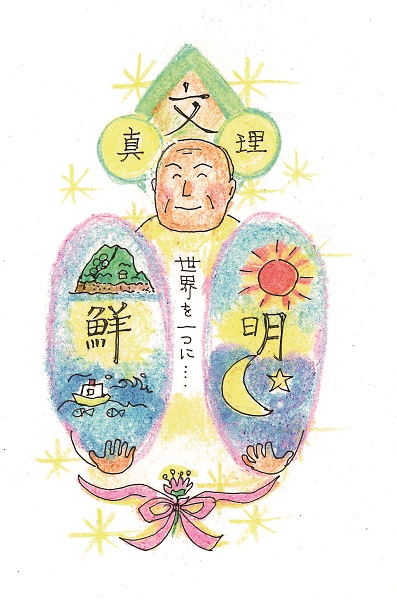 文
真 理
世界を一つに‥‥
鮮 明